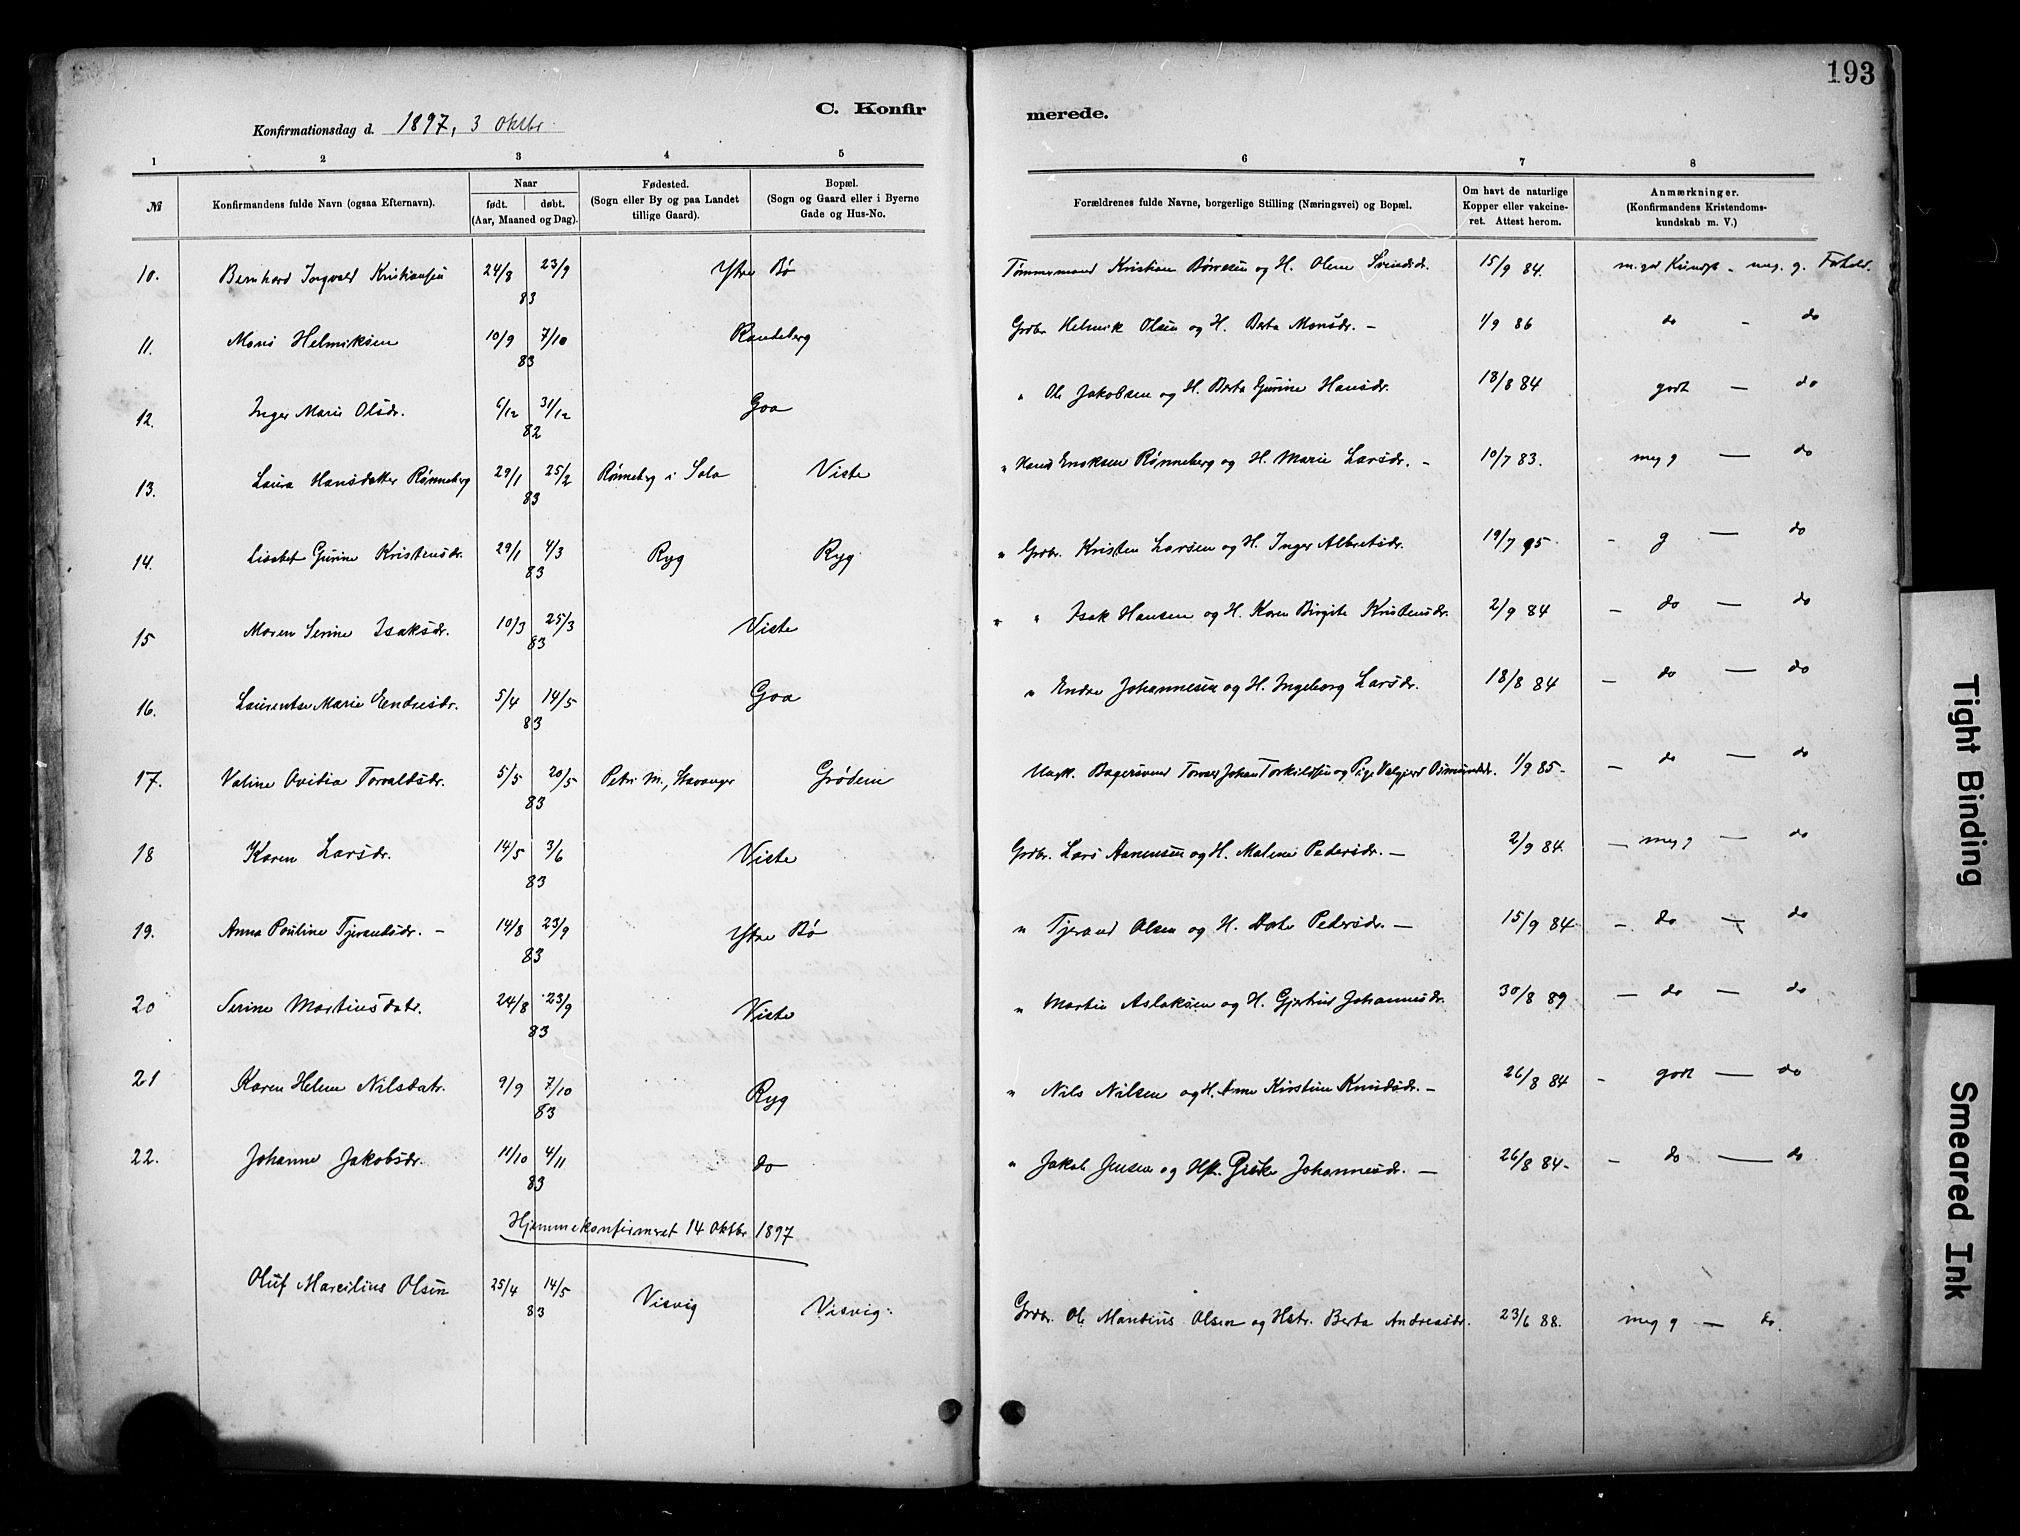 193
C. Konfirmerede.
Konfirmationsdag d. 1897, 3 Oktbr.
1 2 3 4 5 6 7 8
№ Konfirmandens fulde Navn (ogsaa Efternavn). Naar født. døbt. (Aar, Maaned og Dag). Fødested. (Sogn eller By og paa Landet tillige Gaard). Bopæl. (Sogn og Gaard eller i Byerne Gade og Hus-No. Forældrenes fulde Navne, borgerlige Stilling (Næringsvei) og Bopæl. Om havt de naturlige Kopper eller vakcineret. Attest herom. Anmærkninger. (Konfirmandens Kristendomskundskab m. V.)
10. Bernhard Ingvald Kristiansen 24/8 23/9 83 Ytre Bø Tømmermand Kristian Børresen og H. Olene Svendsdr. 15/9 84. m. god Kundsk. - meg. g. Forhold.
11. Mons Helmiksen 10/9 7/10 83 Randeberg Grdbr. Helmik Olsen og H. Berta Monsdr. - 1/9 86 do - do
12. Inger Marie Olsdr. 6/12 31/12 82 Goa " Ole Jakobsen og H. Berta Gurine Hansdr. 18/8 84 godt - do
13. Laura Hansdatter Rønneberg 29/1 25/2 83 Rønneberg i Sola Viste " Hans Enoksen Rønneberg og H. Marie Larsdr. - 10/7 83. meg g - do
14. Lisabet Gurine Kristensdr. 29/1 4/3 83 Ryg Ryg " Grdbr. Kristen Larsen og H. Inger Albretsdr. 19/7 95 - g - do
15 Maren Serine Isaksdr. 10/3 25/3 83 Viste " " Isak Hansen og H. Karen Birgite Kristensdr. 2/9 84 - do - do
16. Laurentse Marie Endresdr. 5/4 14/5 83 Goa " Endre Johannesen og H. Ingeborg Larsdr. 18/8 84 - do - do
17. Valine Ovidia Torvaldsdr. 5/5 20/5 83 Petri M., Stavanger Grødem Ungk. Bagersvend Torvald Johan Torkildsen og Pige Valgjerd Osmundsdr. 1/9 85 - - do - do
18 Karen Larsdr. 14/5 3/6 83 Viste Grdbr. Lars Aanensen og H. Malene Pedersdr. - 2/9 84. - meg g - do
19. Anna Pouline Tjerandsdr. - 14/8 23/9 83 Ytre Bø " Tjerand Olsen og H. Dorte Pedersdr. - 15/9 84 - do - do
20 Serine Martinusdatr. 24/8 23/9 83 Viste " Martin Aslaksen og H. Gjertrud Johannesdr. 30/8 89 - do - do
21 Karen Helene Nilsdatr. 9/9 7/10 83 Ryg " Nils Nilsen og H. Anne Kirstine Knudsdr. - 26/8 84 - godt - do
22. Johanne Jakobsdr. 11/10 4/11 83 do " Jakob Jensen og Johannesdr. - 26/8 84 - - do - do
Hjemmekonfirmeret 14 Oktbr. 1897
Oluf Marcilius Olsen 25/4 14/5 83 Visvig Visvig. Grdbr. Ole Mandius Olsen og Hstr. Berta Andreasdr. 23/6 88. meg g - do.
Tight Binding
Smeared Ink